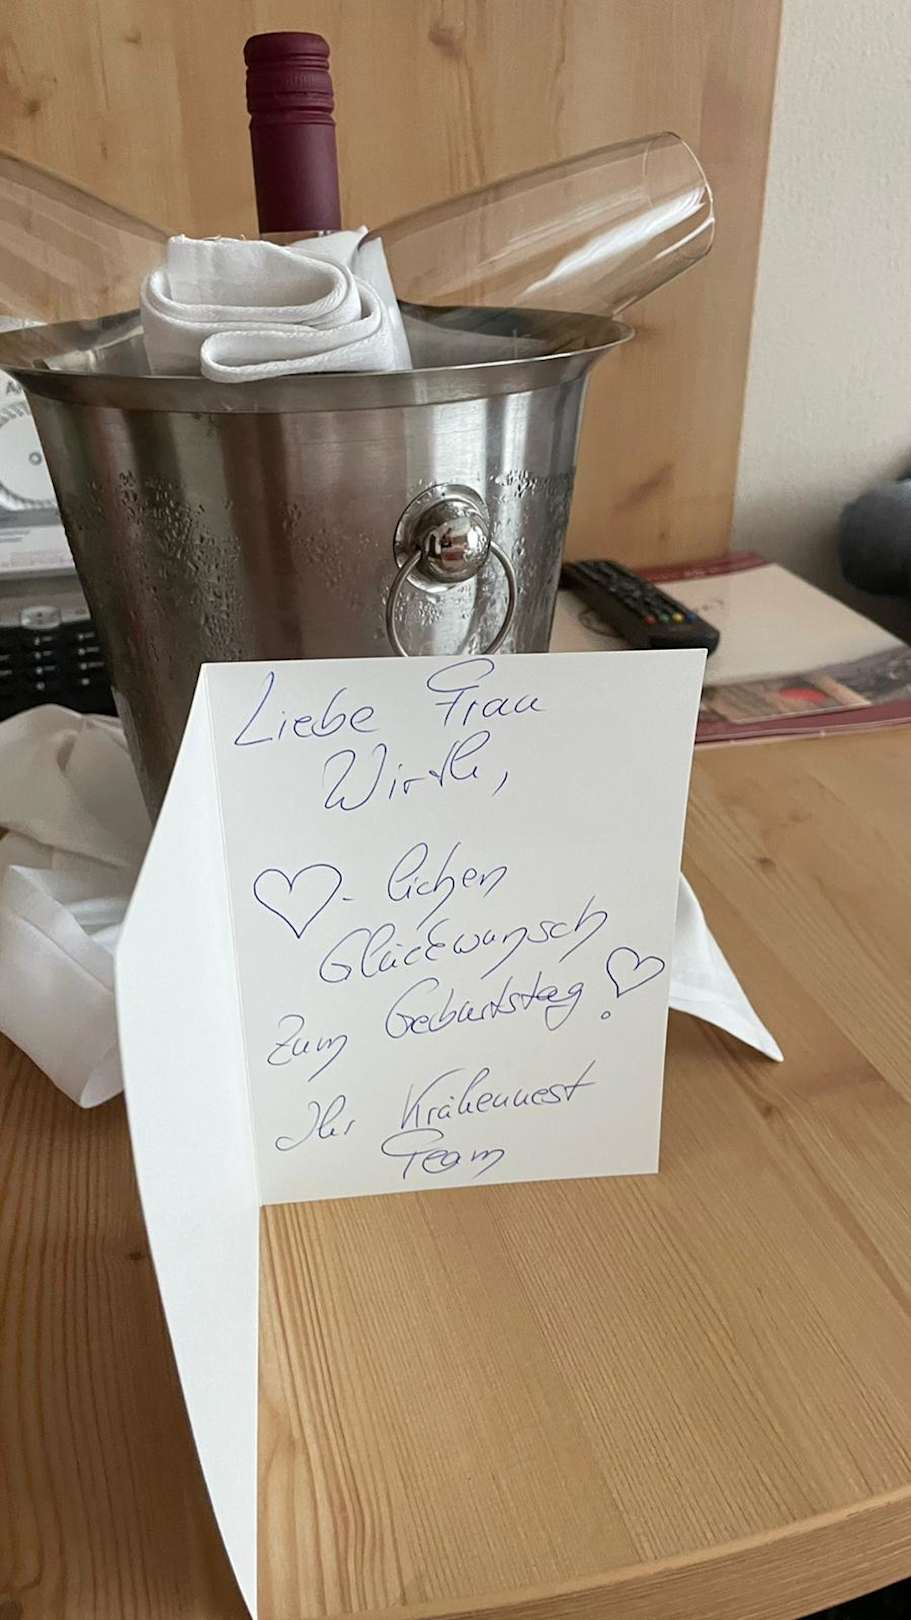 Liebe Frau
Wirth,
♡-lichen
Glückwunsch
zum Geburtstag!
Ihr Krähennest
Team